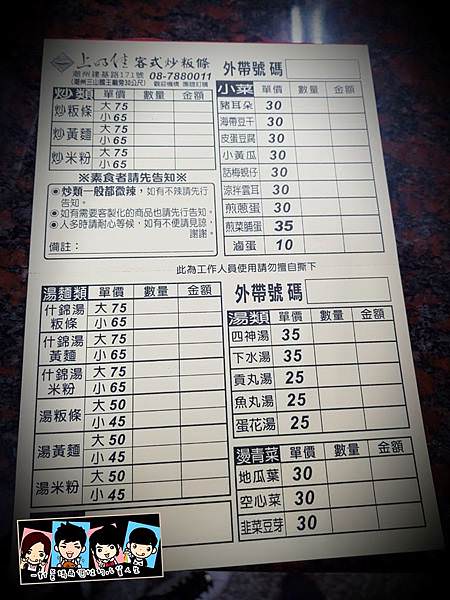 上好佳 客式炒粄條
潮州建基路171號 08-7880011
(潮州三山國王廟旁30公尺) 歡迎機構 團體訂購
外帶號碼
炒類 單價 數量 金額
炒粄條 大 75
小 65
炒黃麵 大 75
小 65
炒米粉 大 75
小 65
※素食者請先告知※
◉炒類一般都微辣，如有不辣請先行
告知。
◉如有需要客製化的商品也請先行告知。
◉人多時請耐心等候，如有不便請見諒，
謝謝。
備註：
小菜 單價 數量 金額
豬耳朵 30
海帶豆干 30
皮蛋豆腐 30
小黃瓜 30
話梅蜆仔 30
涼拌雲耳 30
煎蔥蛋 30
煎菜脯蛋 35
滷蛋 10
此為工作人員使用請勿擅自撕下
湯麵類 單價 數量 金額
什錦湯 大 75
粄條 小 65
什錦湯 大 75
黃麵 小 65
什錦湯 大 75
米粉 小 65
湯粄條 大 50
小 45
湯黃麵 大 50
小 45
湯米粉 大 50
小 45
外帶號碼
湯類 單價 數量 金額
四神湯 35
下水湯 35
貢丸湯 25
魚丸湯 25
蛋花湯 25
燙青菜 單價 數量 金額
地瓜葉 30
空心菜 30
韭菜豆芽 30